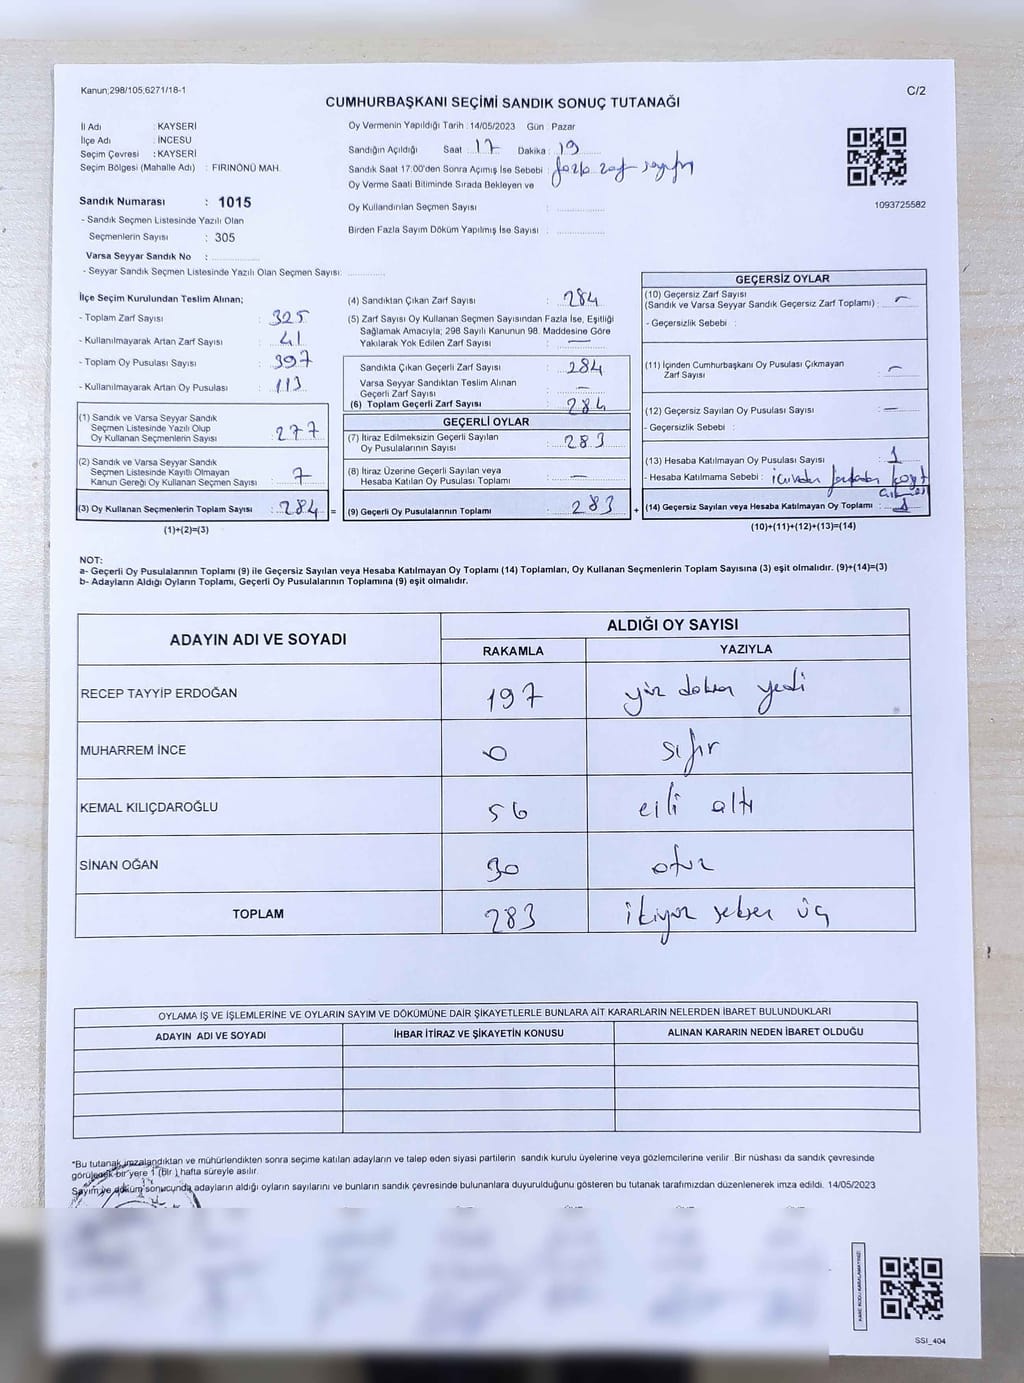 Kanun;298/105,6271/18-1
C/2
CUMHURBAŞKANI SEÇİMİ SANDIK SONUÇ TUTANAĞI
İl Adı : KAYSERİ
İlçe Adı : İNCESU
Seçim Çevresi : KAYSERİ
Seçim Bölgesi (Mahalle Adı) : FIRINÖNÜ MAH.
Sandık Numarası : 1015
- Sandık Seçmen Listesinde Yazılı Olan
Seçmenlerin Sayısı : 305
Varsa Seyyar Sandık No :
- Seyyar Sandık Seçmen Listesinde Yazılı Olan Seçmen Sayısı:
Oy Vermenin Yapıldığı Tarih : 14/05/2023 Gün : Pazar
Sandığın Açıldığı Saat : 17 Dakika : 19
Sandık Saat 17.00'den Sonra Açımış İse Sebebi : fazla zarf sayımı
Oy Verme Saati Bitiminde Sırada Bekleyen ve
Oy Kullandırılan Seçmen Sayısı :
Birden Fazla Sayım Döküm Yapılmış İse Sayısı :
1093725582
İlçe Seçim Kurulundan Teslim Alınan;
- Toplam Zarf Sayısı : 325
- Kullanılmayarak Artan Zarf Sayısı : 41
- Toplam Oy Pusulası Sayısı : 397
- Kullanılmayarak Artan Oy Pusulası : 113
(1) Sandık ve Varsa Seyyar Sandık
Seçmen Listesinde Yazılı Olup
Oy Kullanan Seçmenlerin Sayısı : 277
(2) Sandık ve Varsa Seyyar Sandık
Seçmen Listesinde Kayıtlı Olmayan
Kanun Gereği Oy Kullanan Seçmen Sayısı : 7
(3) Oy Kullanan Seçmenlerin Toplam Sayısı : 284 =
(1)+(2)=(3)
(4) Sandıktan Çıkan Zarf Sayısı : 284
(5) Zarf Sayısı Oy Kullanan Seçmen Sayısından Fazla İse, Eşitliği
Sağlamak Amacıyla; 298 Sayılı Kanunun 98. Maddesine Göre
Yakılarak Yok Edilen Zarf Sayısı : —
Sandıkta Çıkan Geçerli Zarf Sayısı : 284
Varsa Seyyar Sandıktan Teslim Alınan
Geçerli Zarf Sayısı : —
(6) Toplam Geçerli Zarf Sayısı : 284
GEÇERLİ OYLAR
(7) İtiraz Edilmeksizin Geçerli Sayılan
Oy Pusulalarının Sayısı : 283
(8) İtiraz Üzerine Geçerli Sayılan veya
Hesaba Katılan Oy Pusulası Toplamı : —
(9) Geçerli Oy Pusulalarının Toplamı : 283 +
GEÇERSİZ OYLAR
(10) Geçersiz Zarf Sayısı
(Sandık ve Varsa Seyyar Sandık Geçersiz Zarf Toplamı) : —
- Geçersizlik Sebebi :
(11) İçinden Cumhurbaşkanı Oy Pusulası Çıkmayan
Zarf Sayısı : —
(12) Geçersiz Sayılan Oy Pusulası Sayısı : —
- Geçersizlik Sebebi :
(13) Hesaba Katılmayan Oy Pusulası Sayısı : 1
- Hesaba Katılmama Sebebi : içinden
(14) Geçersiz Sayılan veya Hesaba Katılmayan Oy Toplamı : 1
(10)+(11)+(12)+(13)=(14)
NOT:
a- Geçerli Oy Pusulalarının Toplamı (9) ile Geçersiz Sayılan veya Hesaba Katılmayan Oy Toplamı (14) Toplamları, Oy Kullanan Seçmenlerin Toplam Sayısına (3) eşit olmalıdır. (9)+(14)=(3)
b- Adayların Aldığı Oyların Toplamı, Geçerli Oy Pusulalarının Toplamına (9) eşit olmalıdır.
ADAYIN ADI VE SOYADI
ALDIĞI OY SAYISI
RAKAMLA YAZIYLA
RECEP TAYYİP ERDOĞAN 197 yüz doksan yedi
MUHARREM İNCE 0 sıfır
KEMAL KILIÇDAROĞLU 56 elli altı
SİNAN OĞAN 30 otuz
TOPLAM 283 ikiyüz seksen üç
OYLAMA İŞ VE İŞLEMLERİNE VE OYLARIN SAYIM VE DÖKÜMÜNE DAİR ŞİKAYETLERLE BUNLARA AİT KARARLARIN NELERDEN İBARET BULUNDUKLARI
ADAYIN ADI VE SOYADI İHBAR İTİRAZ VE ŞİKAYETİN KONUSU ALINAN KARARIN NEDEN İBARET OLDUĞU
*Bu tutanak imzalandıktan ve mühürlendikten sonra seçime katılan adayların ve talep eden siyasi partilerin sandık kurulu üyelerine veya gözlemcilerine verilir .Bir nüshası da sandık çevresinde
görülecek bir yere 1 (bir ) hafta süreyle asılır.
Sayım ve döküm sonucunda adayların aldığı oyların sayılarını ve bunların sandık çevresinde bulunanlara duyurulduğunu gösteren bu tutanak tarafımızdan düzenlenerek imza edildi. 14/05/2023
KARE KODU KARALAMAYINIZ!
SSI_404